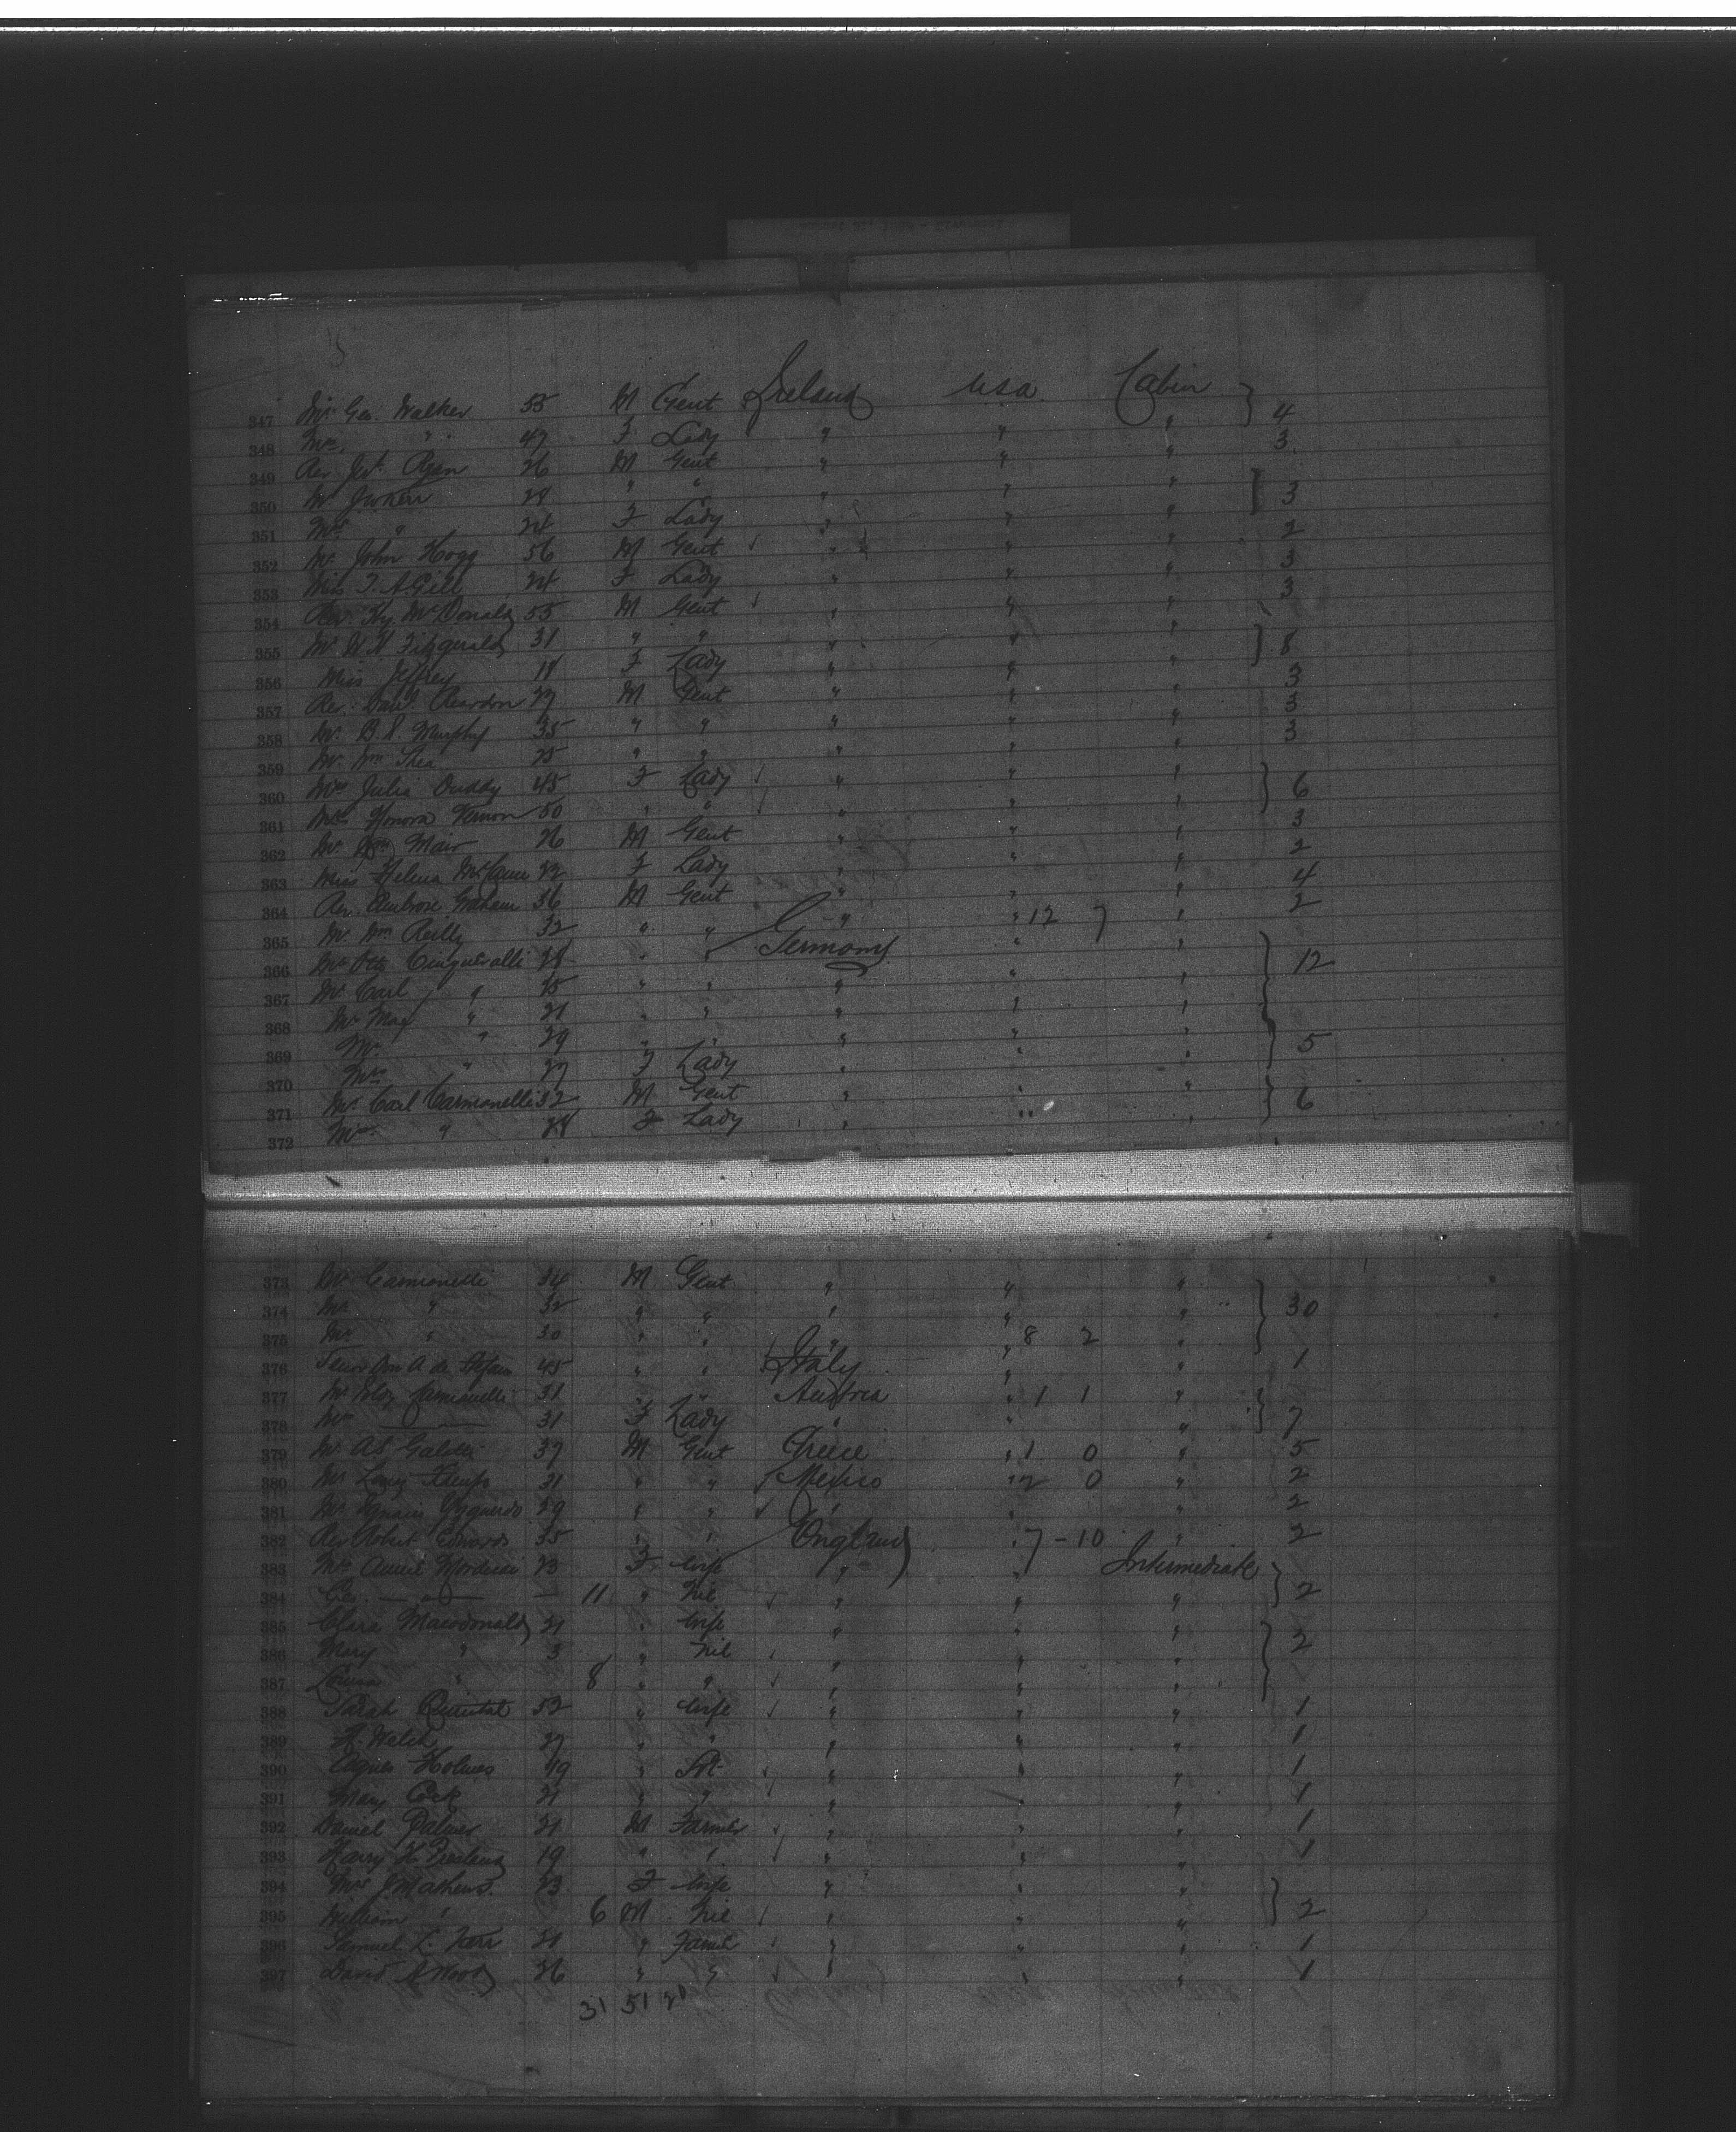 347 Mr Geo. Walker 55 M Gent Ireland USA Cabin } 4
348 Mrs " 47 F Lady " " " 3
349 Rev Jas. Ryan 26 M Gent " " "
350 Mr 28 " " " " " } 3
351 Mrs " 24 F Lady " " " 2
352 Mr John Hogg 56 M Gent " " " 3
353 Miss T. A. Gill 24 F Lady " " " 3
354 Rev. Hy. McDonald 55 M Gent " " "
355 Mr W H Fitzgerald 31 " " " " " } 8
356 Miss Jeffrey 18 F Lady " " " 3
357 Rev. Danl. Reardon 27 M Gent " " " 3
358 Mr. B. S. Murphy 35 " " " " " 3
359 Mr. Wm Shea 25 " " " " "
360 Mrs Julia Cuddy 45 F Lady " " " } 6
361 Mrs Honora Vernon 50 " " " " " 3
362 Mr Wm Mair 26 M Gent " " " 2
363 Miss Helena McCann 22 F Lady " " " 4
364 Rev. Ambrose Graham 36 M Gent " " " 2
365 Mr Wm Reilly 32 " " " " 12 7 "
366 Mr Otto Cinquevalli 28 " " Germany " " } 12
367 Mr Carl " 25 " " " " "
368 Mr Max " 21 " " " " "
369 Mr " 29 " " " " " } 5
370 Mrs " 27 F Lady " " "
371 Mr Carl Carmanelli 32 M Gent " " " } 6
372 Mrs " 28 F Lady " " "
373 Mr Carmanelli 34 M Gent " " "
374 Mr " 32 " " " " " } 30
375 Mr " 30 " " " " 8 2 "
376 Senor Don A de Stefani 45 " " Italy " " 1
377 Mr 31 " " Austria " 1 1 "
378 Mrs 31 F Lady " " " } 7
379 Mr. A S 37 M Gent Greece " 1 0 " 5
380 Mr 21 " " Mexico " 2 0 " 2
381 Mr Ignacio 29 " " " " " 2
382 Rev Robert Edwards 35 " " England " 7 - 10 " 2
383 Mrs Annie 23 F Wife " " Intermediate
384 Geo. — " — 11 " Nil " " " } 2
385 Clara Macdonald 21 " Wife " " "
386 Mary " 3 " Nil " " " } 2
387 Louisa " 8 " " " " "
388 Sarah 52 " Wife " " " 1
389 H. Welch 27 " " " " " 1
390 Agnes Holmes 19 " Spt. " " " 1
391 Mary Cock 21 " " " " " 1
392 Daniel Palmer 21 M Farmer " " " 1
393 Harry H. 19 " " " " " 1
394 Mrs J Mathews 23 F Wife " " "
395 William " 6 M Nil " " " } 2
396 Samuel L. 21 " Farmr " " " 1
397 David A Wood 26 " " " " " 1
31 51 20